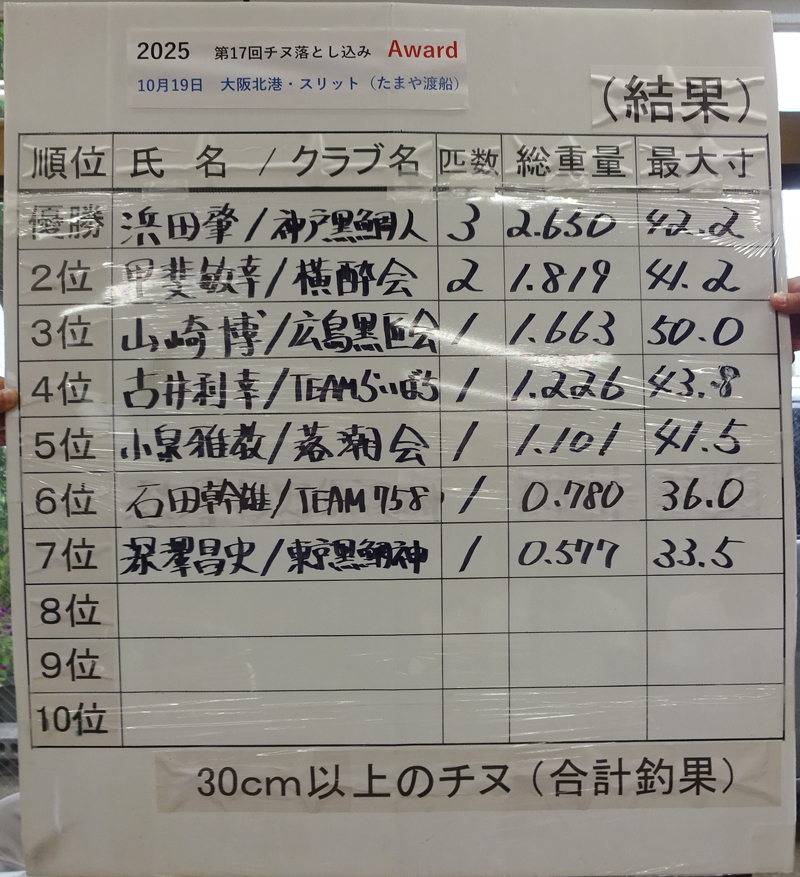 2025 第17回チヌ落とし込み Award
10月19日 大阪北港・スリット（たまや渡船）
（結果）
順位 氏 名 / クラブ名 匹数 総重量 最大寸
優勝 浜田肇/神戸黒鯛人 3 2.650 42.2
2位 甲斐敏幸/横酔会 2 1.819 41.2
3位 山崎博/広島黒匠会 1 1.663 50.0
4位 古井利幸/TEAMらいぼち 1 1.226 43.8
5位 小泉雅教/落潮会 1 1.101 41.5
6位 石田幹雄/TEAM758 1 0.780 36.0
7位 深澤昌史/東京黒鯛神 1 0.577 33.5
8位
9位
10位
30cm以上のチヌ（合計釣果）